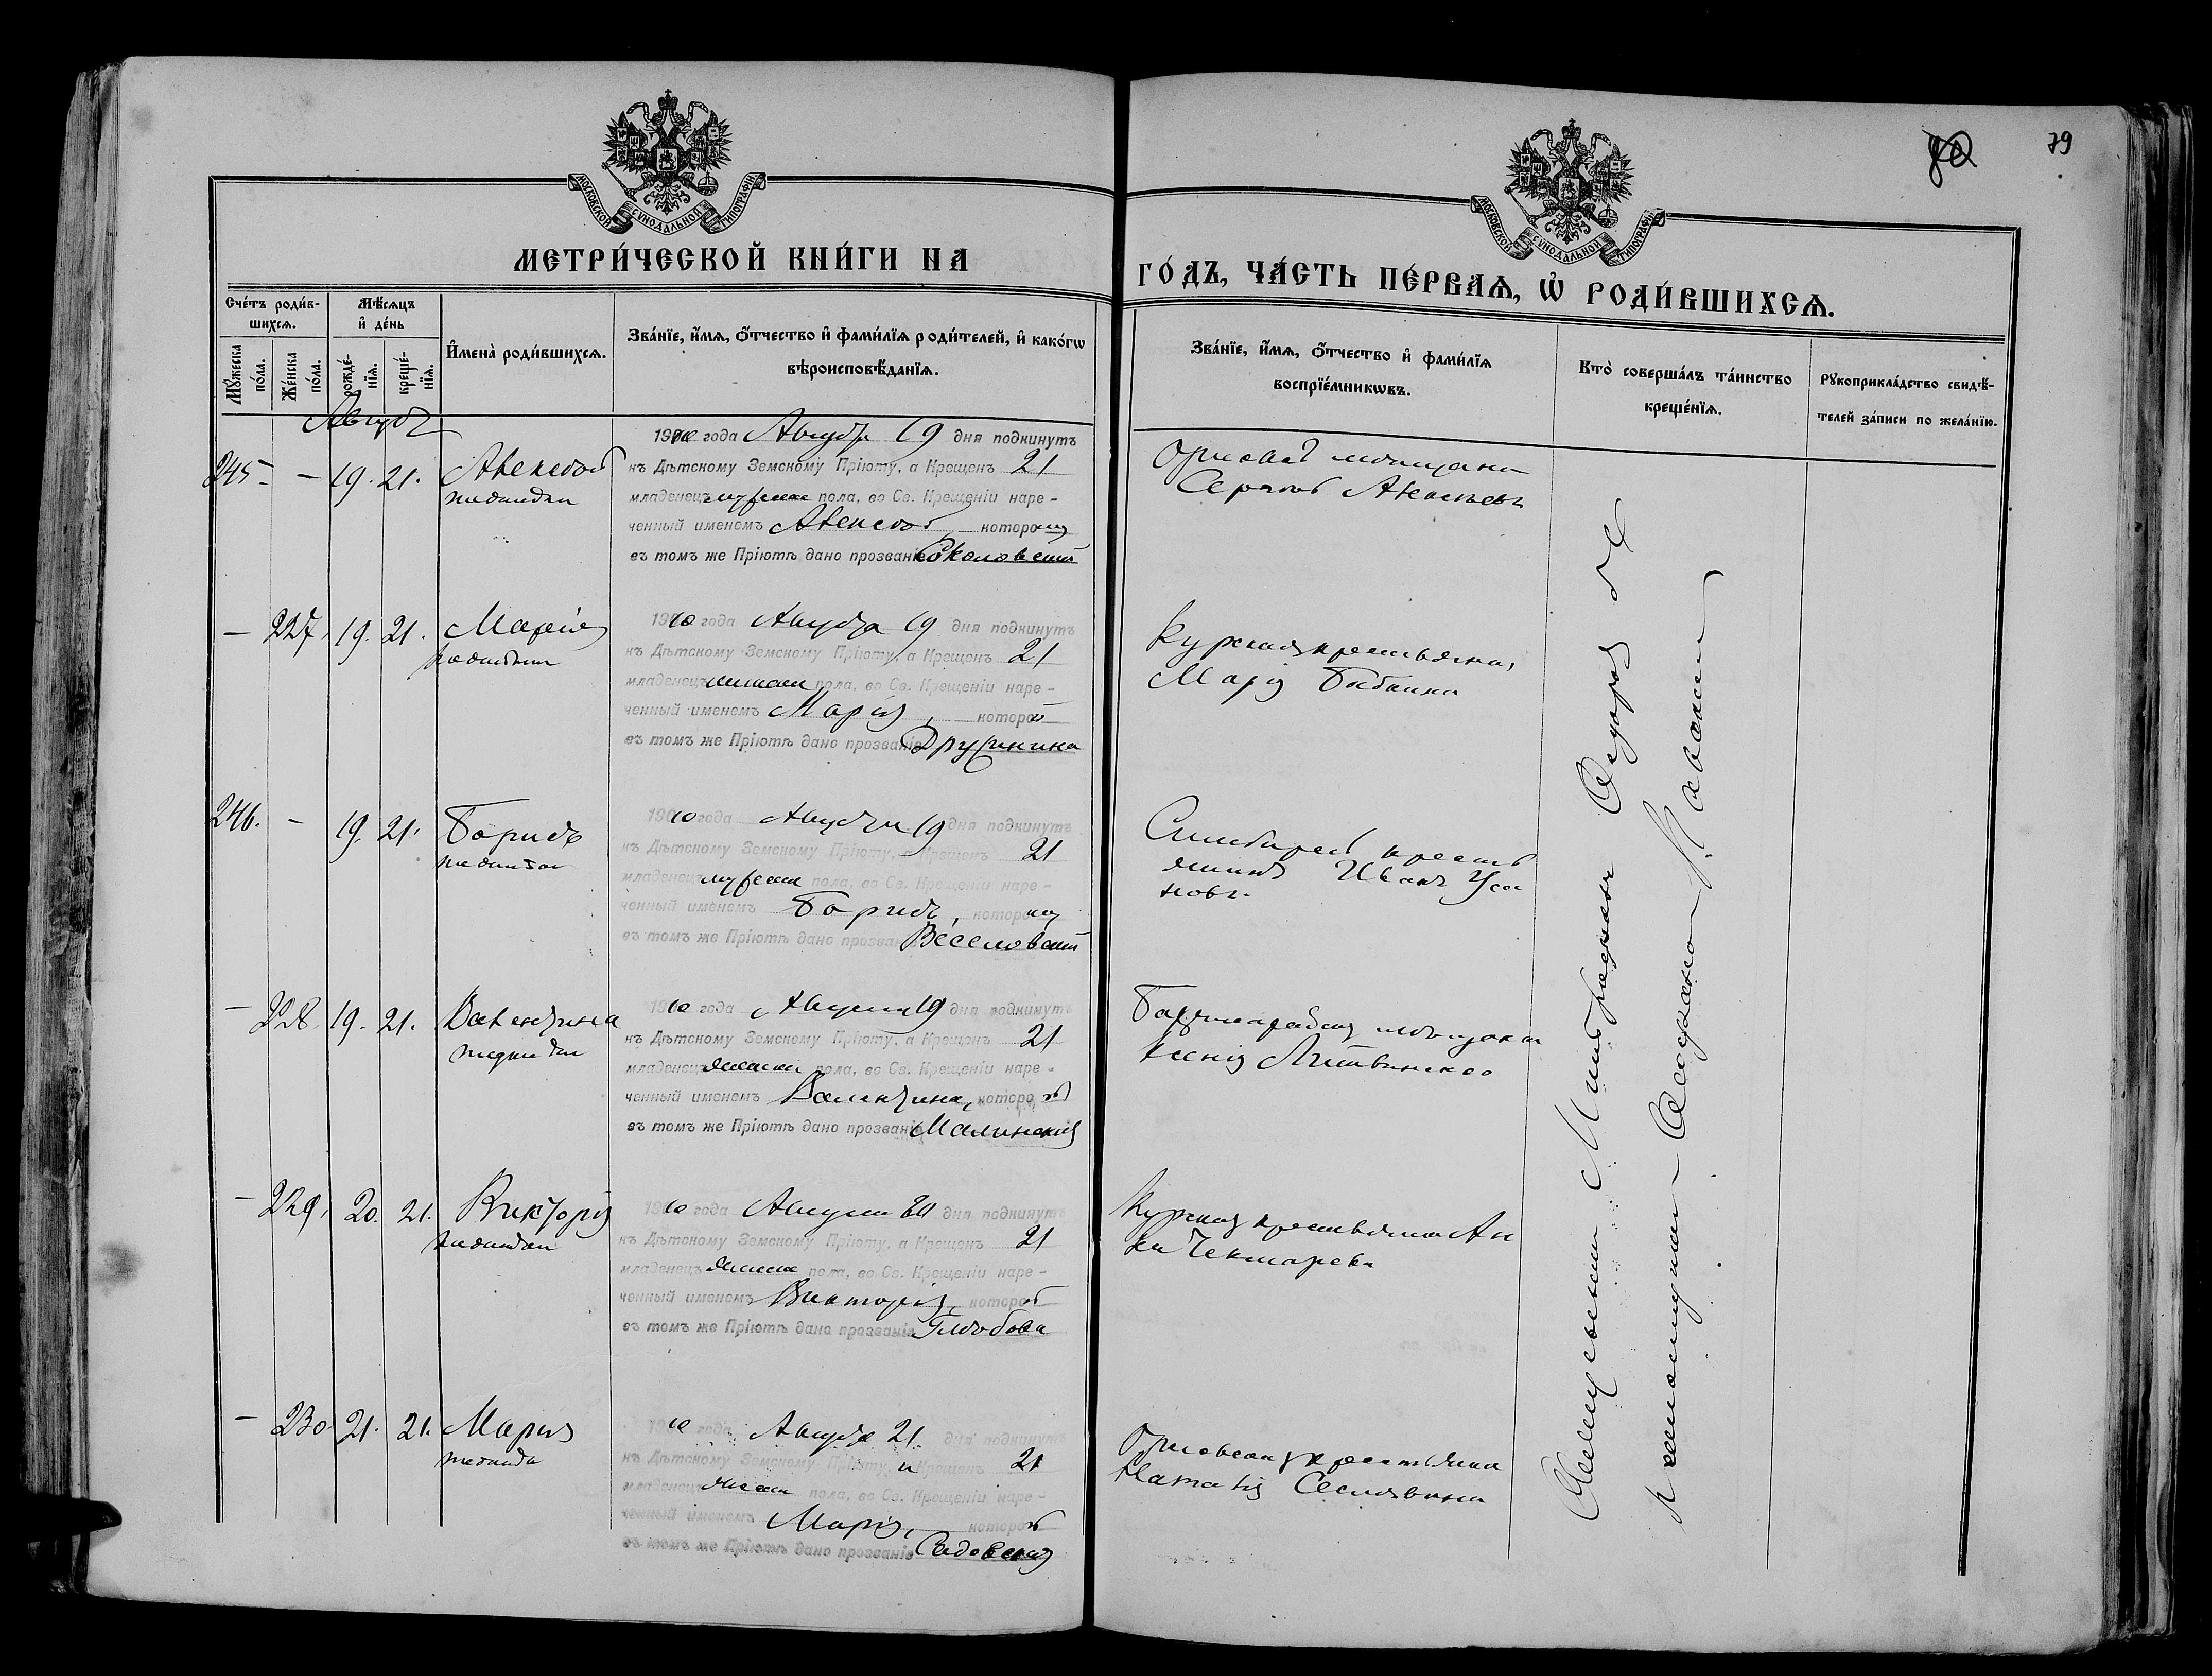 80
79
МОСКОВСКОЙ СѴНОДАЛЬНОЙ ТИПОГРАФІИ
МОСКОВСКОЙ СѴНОДАЛЬНОЙ ТИПОГРАФІИ
МЕТРИ́ЧЕСКОЙ КНИ́ГИ НА
ГО́ДЪ, ЧА́СТЬ ПЕ́РВАѦ, Ѡ҆ РОДИ́ВШИХСѦ.
Сче́тъ роди́в-
шихсѧ.
Мꙋ́жеска
по́ла.
Же́нска
по́ла.
Мѣ́сѧцъ
и҆ де́нь
рожде́-
нїѧ.
креще́-
нїѧ.
И҆мена̀ роди́вшихсѧ.
Зва́нїе, и҆́мѧ, ѻ҆́тчество и҆ фами́лїѧ роди́телей, и҆ како́гѡ
вѣроисповѣ́данїѧ.
Зва́нїе, и҆́мѧ, ѻ҆́тчество и҆ фами́лїѧ
воспрїе́мникѡвъ.
Кто̀ соверша́лъ та́инство
креще́нїѧ.
Рꙋкоприкла́дство свидѣ́-
телей за́писи по жела́нїю.
Августъ
245 - — 19. 21. Алексѣй
1910 года Августа 19 дня подкинутъ
къ Дѣтскому Земскому Пріюту, а Крещенъ 21
младенецъ мужеска пола, во Св. Крещеніи наре-
ченный именемъ Алексѣй котором у
въ томъ же Пріютѣ дано прозваніе Соколовскій
мѣщанин
— 227. 19. 21. Марія
1910 года Августа 19 дня подкинутъ
къ Дѣтскому Земскому Пріюту, а Крещенъ 21
младенецъ женска пола, во Св. Крещеніи наре-
ченный именемъ Марія, которой
въ томъ же Пріютѣ дано прозваніе Дружинина
Курская крестьянка
Марія
246. — 19. 21. Борисъ
1910 года Августа 19 дня подкинутъ
къ Дѣтскому Земскому Пріюту, а Крещенъ 21
младенецъ мужеска пола, во Св. Крещеніи наре-
ченный именемъ Борисъ, которому
въ томъ же Пріютѣ дано прозваніе Веселовскій
Симбирск кресть
янинъ Иванъ Уса
новъ.
— 228. 19. 21. Валентина
1910 года Августа 19 дня подкинутъ
къ Дѣтскому Земскому Пріюту, а Крещенъ 21
младенецъ женска пола, во Св. Крещеніи наре-
ченный именемъ Валентина, которой
въ томъ же Пріютѣ дано прозваніе Малинская
мѣщанка
Ксенія
— 229. 20. 21. Викторія
1910 года Августа 20 дня подкинутъ
къ Дѣтскому Земскому Пріюту, а Крещенъ 21
младенецъ женска пола, во Св. Крещеніи наре-
ченный именемъ Викторія, которой
въ томъ же Пріютѣ дано прозваніе Глѣбова
Курская крестьянка Ан
на Чекмарева
— 230. 21. 21. Марія
1910 года Августа 21. дня подкинутъ
къ Дѣтскому Земскому Пріюту, и Крещенъ 21
младенецъ женска пола, во Св. Крещеніи наре-
ченный именемъ Марія, которой
въ томъ же Пріютѣ дано прозваніе Садовская
Орловская крестьянка
Наталія
Священникъ Митрофанъ Ѳедоровъ